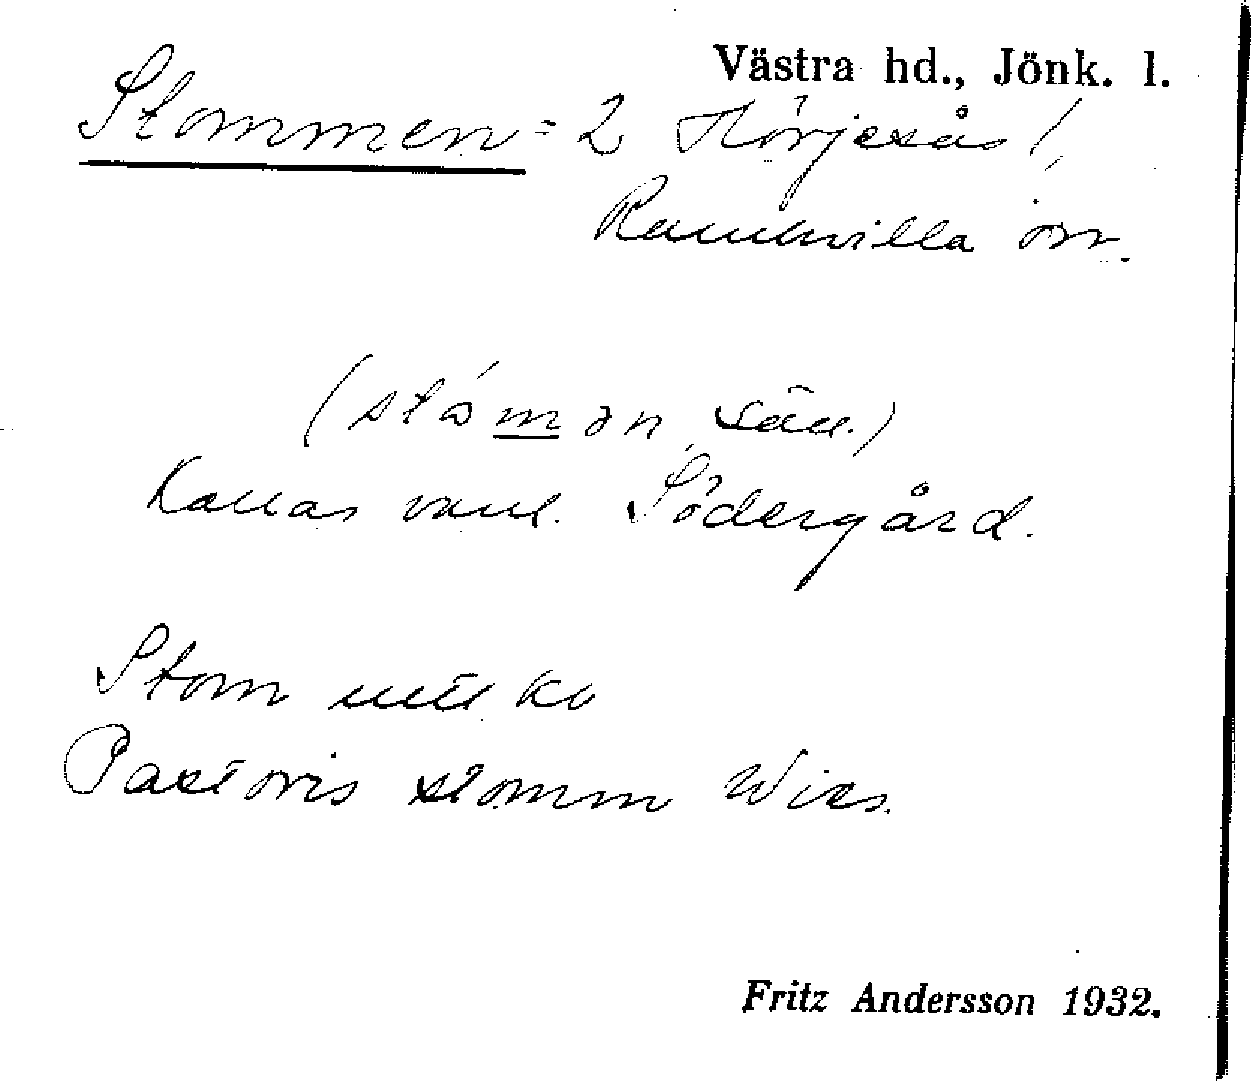 Västra hd., Jönk. l.
Stommen = 2 Hörjesås /,
Ramkvilla sn.
(stómən, säll.)
Kallas vanl. Södergård.
Stom
Pastoris stomm Wies.
Fritz Andersson 1932.